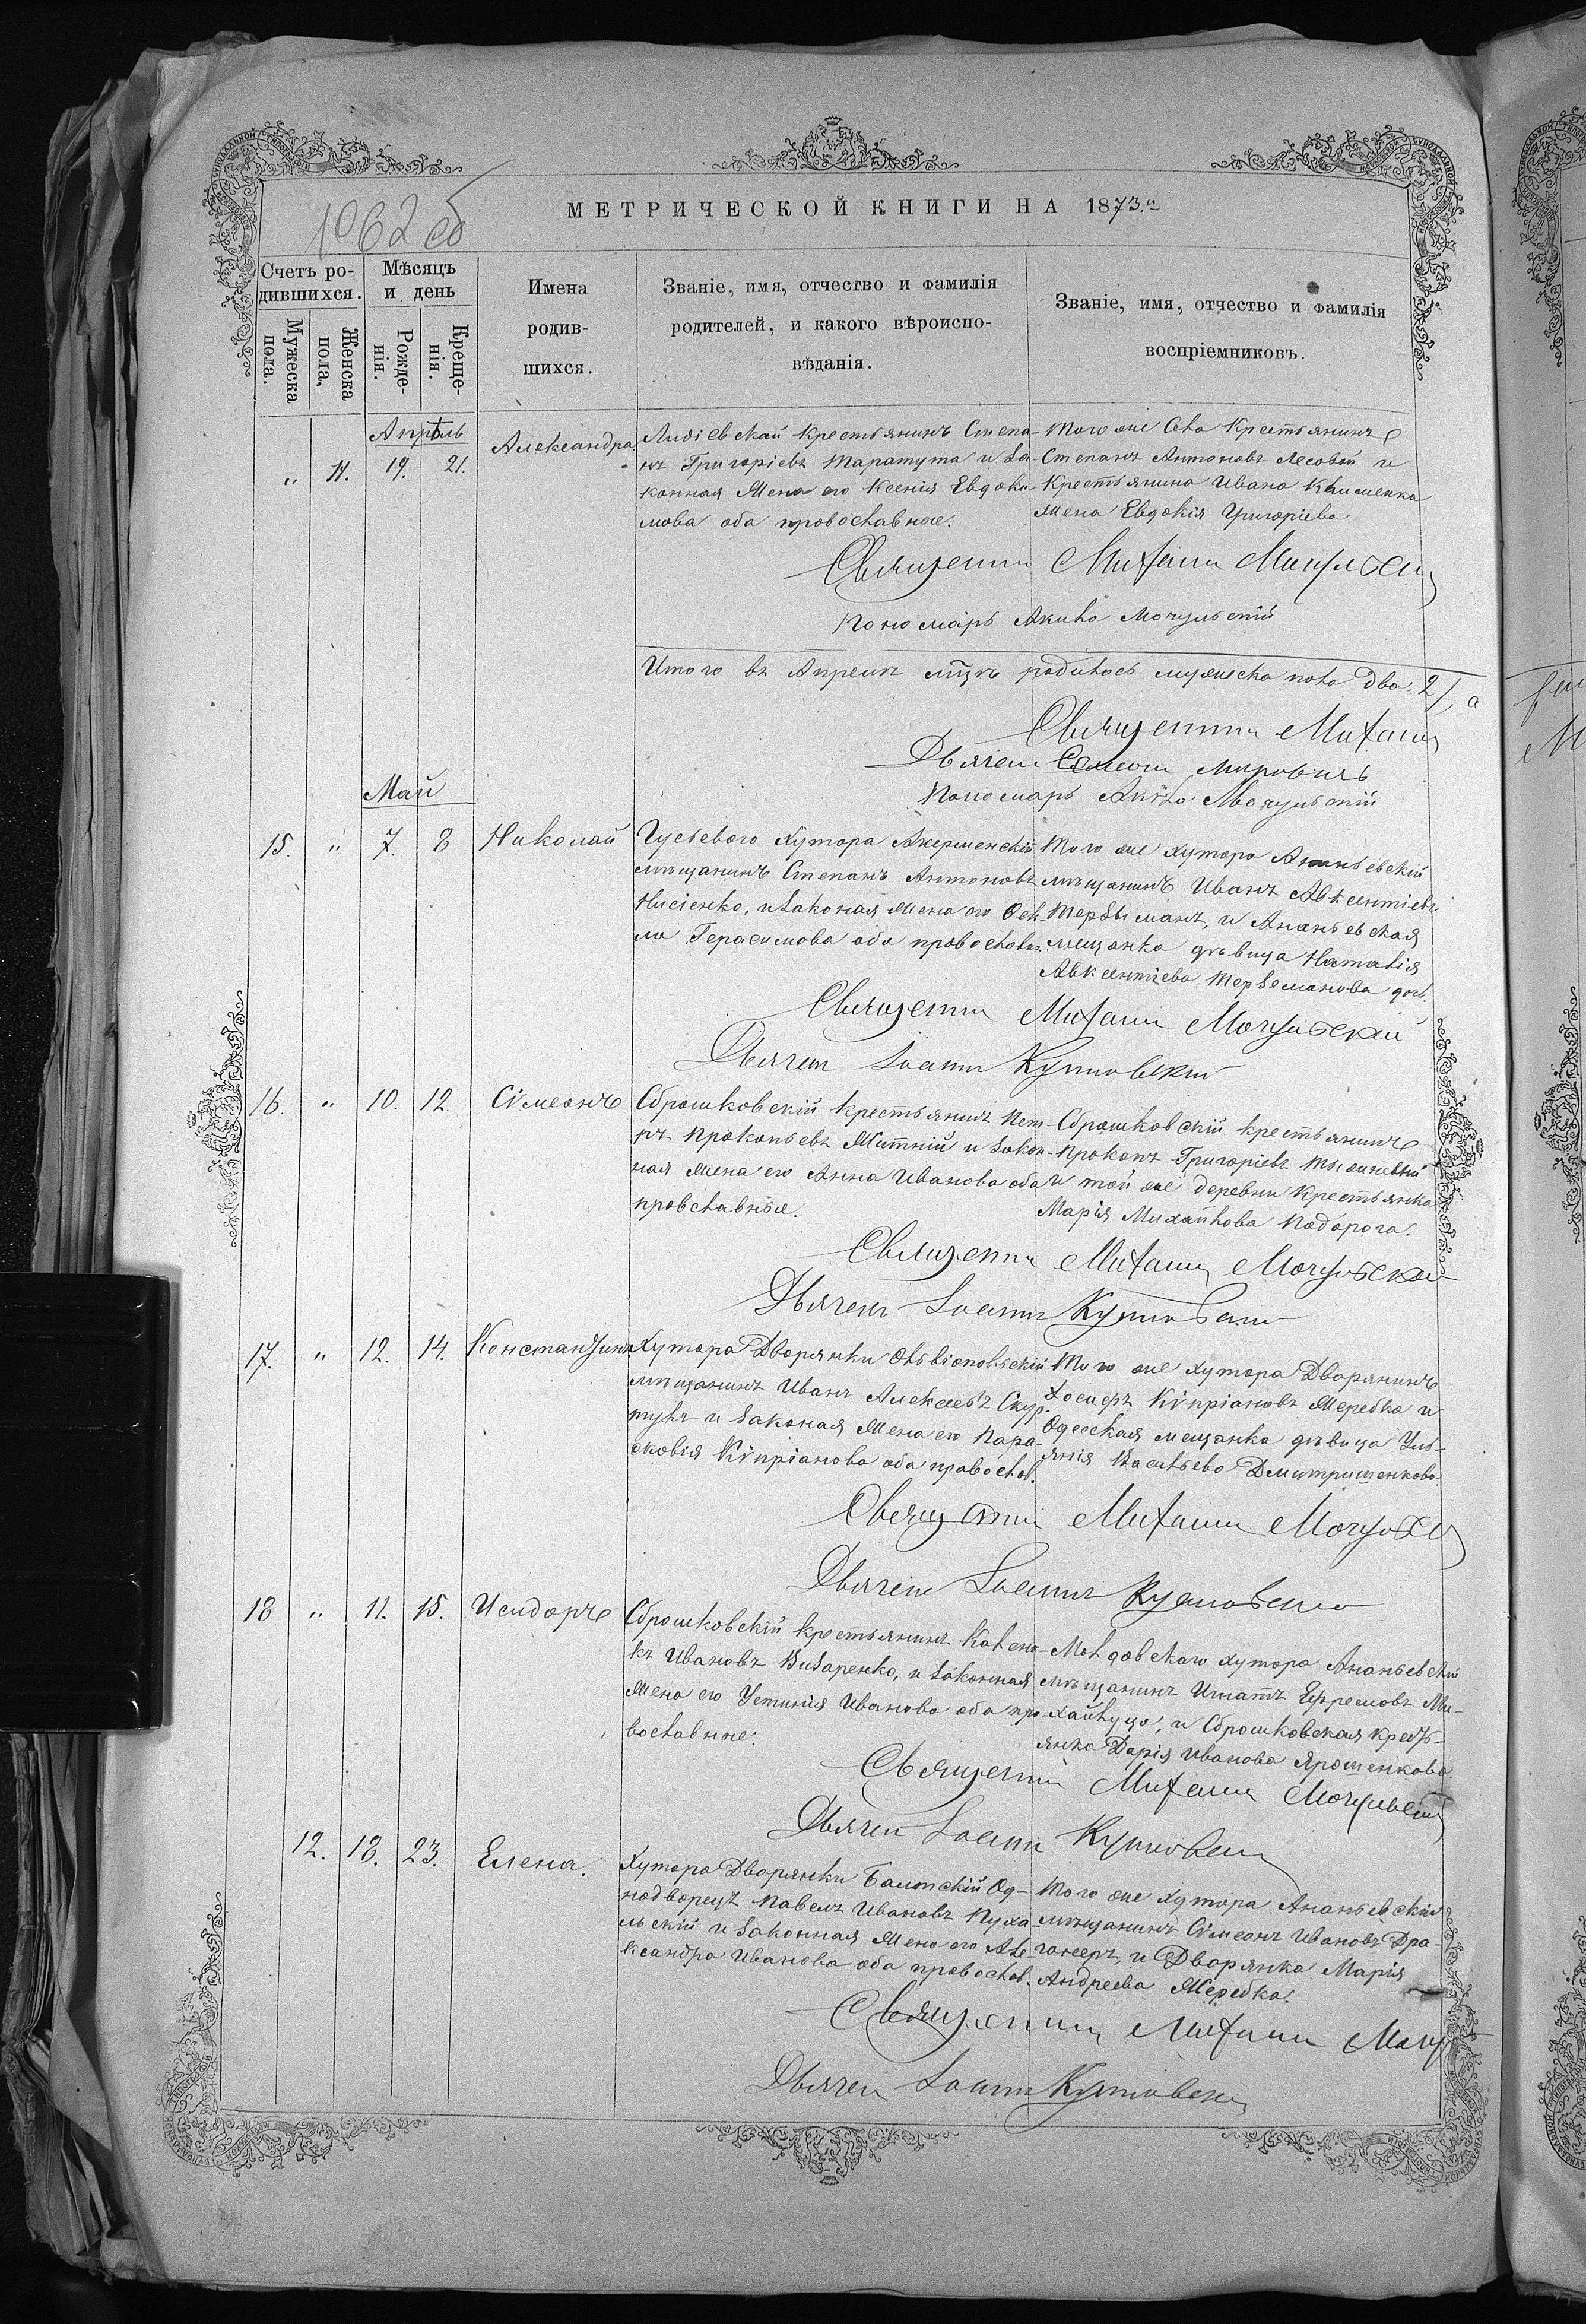 1062 об
МЕТРИЧЕСКОЙ КНИГИ НА 1873.й
Счетъ ро-
дившихся.
Мужеска
пола.
Женска
пола,
Мѣсяцъ
и день
Рожде-
нія.
Креще-
нія.
Имена
родив-
шихся.
Званіе, имя, отчество и фамилія
родителей, и какого вѣроиспо-
вѣданія.
Званіе, имя, отчество и фамилія
воспріемниковъ.
Апрѣль
" 11. 19. 21.
Александра
Лидіевской Крестьянинъ Степа-
нъ Григоріевъ Таратута и За-
конная Жена его Ксенія Евдоки-
мова оба православные.
Того же Села Крестьянинъ
Степанъ Антоновъ Лесовой и
Крестьянина Ивана Клименка
Жена Евдокія Григоріева
Священникъ Михаилъ Мочульскій
Пономарь Акила Мочульскій
Итого въ Апрелѣ мцѣ родилось мужеска пола два. 2/,
Священникъ Михаилъ
Дьячекъ Симеонъ Мировичъ
Пономарь Акила Мочульскій
Май
15. " 7. 8
Николай
Гусьевого Хутора Акерменскій
мѣщанинъ Степанъ Антоновъ
Нисіенко, и Законая жена его Фек-
ла Герасимова оба православн.
Того же хутора Ананьевскій
мѣщанинъ Иванъ Авксентіевъ
и Ананьевская
мещанка дѣвица Наталія
Авксентіева дочь.
Священникъ Михаилъ Мочульскій
Дьячекъ Іоаннъ Куписвскій
16. " 10. 12.
Сѵмеонъ
Сброшковскій крестьянинъ Пет-
ръ Прокопьевъ Житній и Закон-
ная жена его Анна Иванова оба
правславные.
Сброшковскій крестьянинъ
Прокопъ Григоріевъ
и той же деревни Крестьянка
Марія Михайлова Подорога.
Священникъ Михаилъ Мочульскій
Дьячекъ Іоаннъ
17. " 12. 14.
Константинъ
Хутора Дворянки Ольвіопольскій
мѣщанинъ Иванъ Алексеевъ Скур-
тулъ и Законая Жена его Пара-
сковія Кѵпріанова оба православ.
Того же хутора Дворянинъ
Кѵпріановъ Жеребка и
Одесская мещанка дѣвица Уль-
янія Васильева Дмитришенкова.
Священникъ Михаилъ Мочульскій
Дьячекъ Іоаннъ
18 " 11. 15.
Исидоръ
Сброшковскій крестьянинъ Калени-
къ Ивановъ Визаренко, и Законная
Жена его Устинія Иванова оба пра-
вославные.
Молдовскаго хутора Ананьевскій
мѣщанинъ Игнатъ Ефремовъ Ми-
хайлуца, и Сброшковская Крест-
янка Дарія Иванова Ярошенкова.
Священникъ Михаилъ Мочульскій
Дьячекъ Іоаннъ
12. 18. 23.
Елена.
Хутора Дворянки Балтскій Од-
нодворецъ Павелъ Ивановъ Пуха-
льскій и Законная Жена его Але-
ксандра Иванова оба православ.
Того же хутора Ананьевскій
мѣщанинъ Сѵмеонъ Ивановъ Дра-
гонеръ, и Дворянка Марія
Андреева Жеребка.
Священникъ Михаилъ
Дьячекъ Іоаннъ